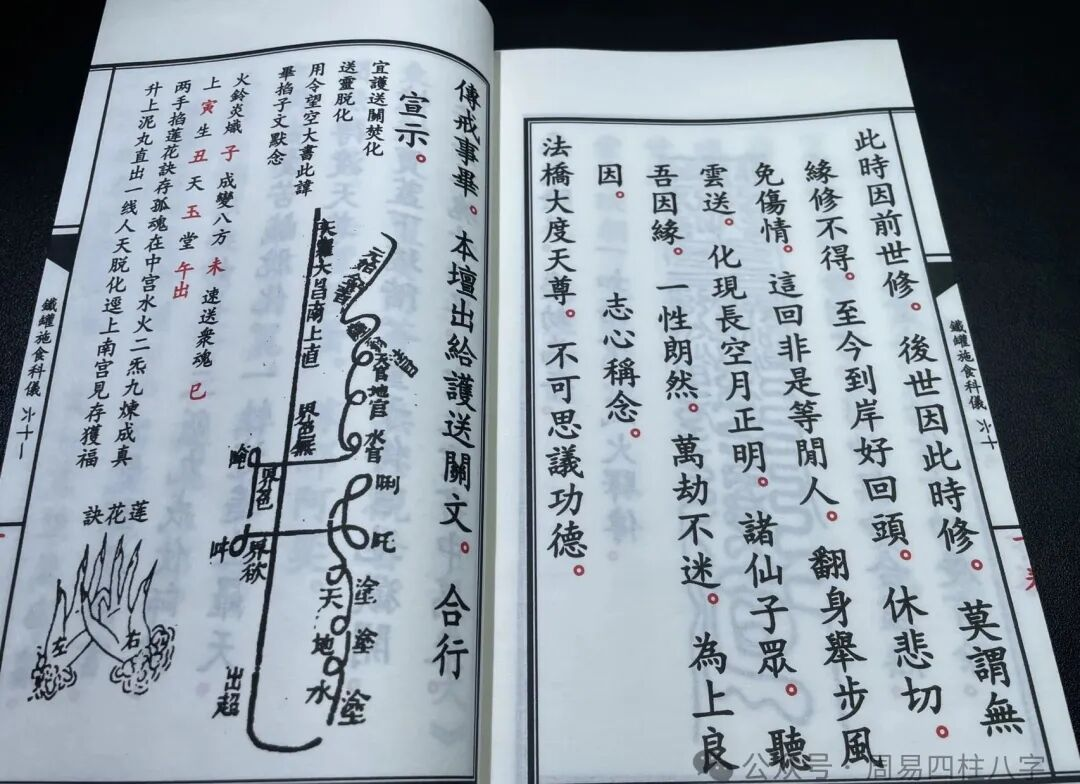 此時因前世修。後世因此時修。莫謂無
緣修不得。至今到岸好回頭。休悲切。
免傷情。這回非是等閒人。翻身舉步風
雲送。化現長空月正明。諸仙子眾。聽
吾因緣。一性朗然。萬劫不迷。為上良
因。 志心稱念。
法橋大度天尊。不可思議功德。
鐵罐施食科儀 十
傳戒事畢。本壇出給護送關文。合行
宣示。
宜護送關焚化
送靈脱化
用令望空大書此諱
畢掐子文默念
地官
水官
唎
吒
天
地
水
塗
塗
塗
南上直
界色無
界色
界欲
唵
吽
出超
火鈴炎熾子成變八方未速送衆魂巳
上寅生丑天玉堂午出
两手掐蓮花訣存孤魂在中宮水火二炁九煉成真
升上泥丸直出一线人天脱化逕上南宫見存獲福
訣花蓮
左
右
鐵罐施食科儀 十一
公众号 · 周易四柱八字